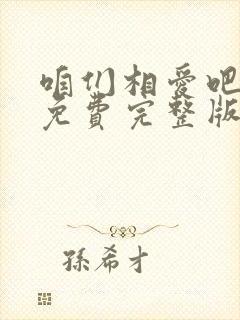 咱们相爱吧
免费完整版
孫希才